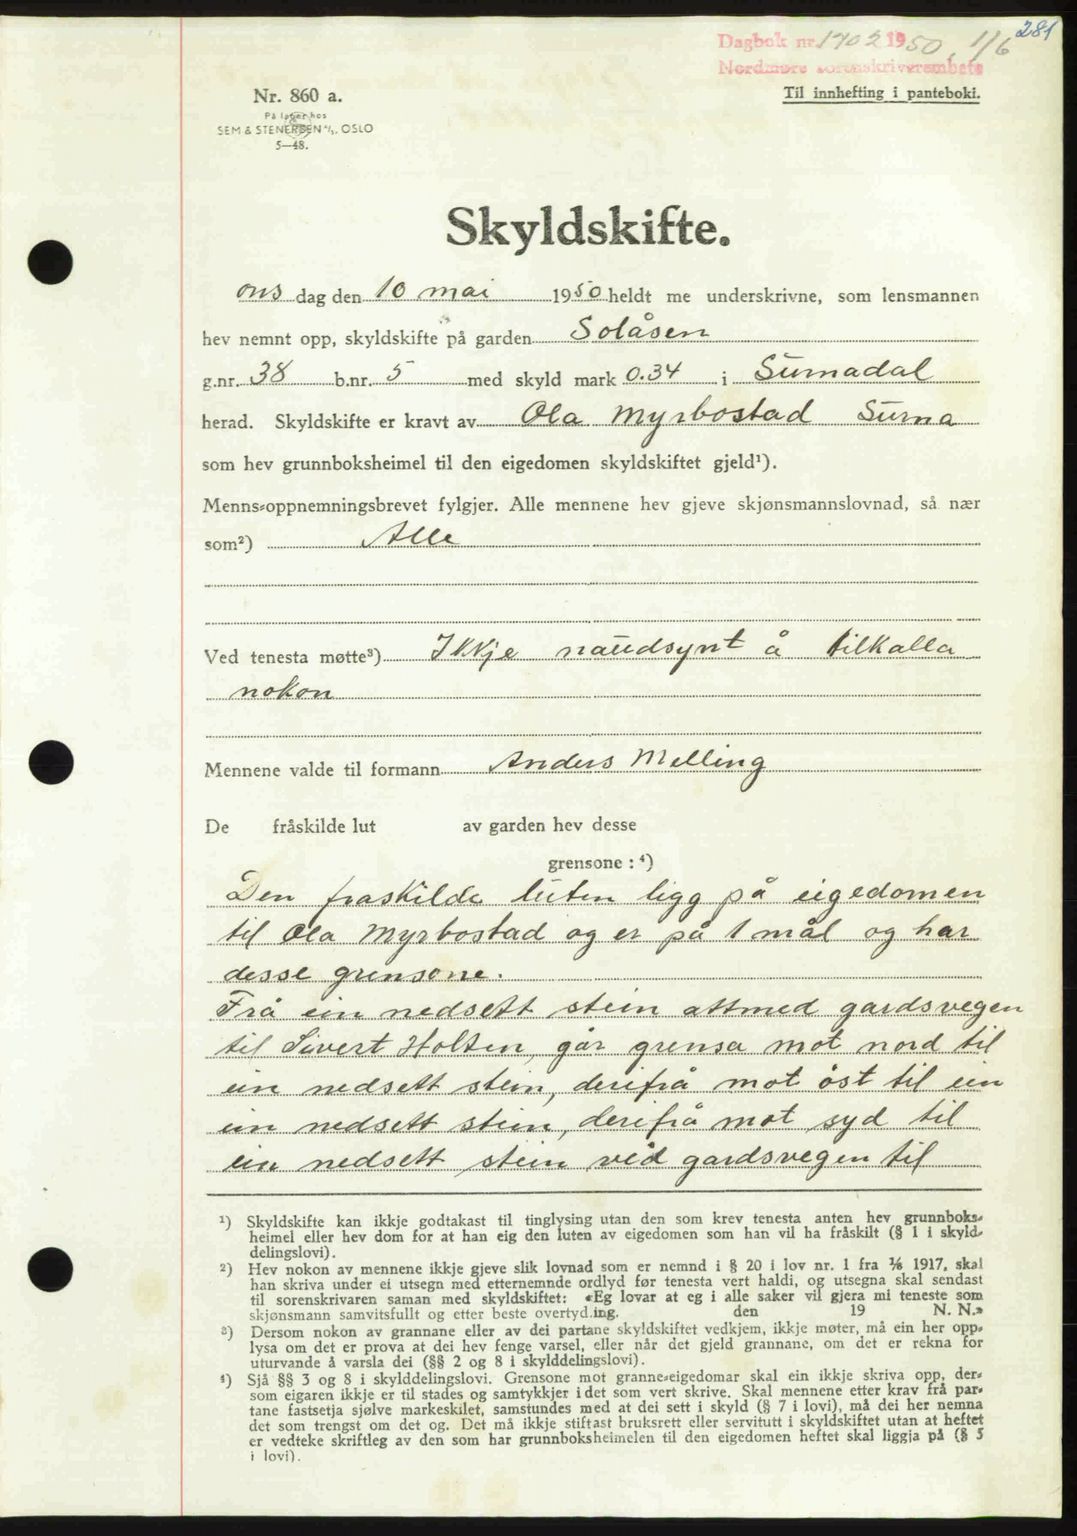 281
Dagbok nr. 1702 1950, 1/6
Nordmøre sorenskriverembete
Til innhefting i panteboki.
Nr. 860 a.
På lager hos
SEM & STENERSEN A/S, OSLO
5—48.
Skyldskifte.
ons dag den 10 mai 1950 heldt me underskrivne, som lensmannen
hev nemnt opp, skyldskifte på garden Solåsen
g.nr. 38 b.nr. 5 med skyld mark 0.34 i Surnadal
herad. Skyldskifte er kravt av Ola Myrbostad Surna
som hev grunnboksheimel til den eigedomen skyldskiftet gjeld¹).
Menns-oppnemningsbrevet fylgjer. Alle mennene hev gjeve skjønsmannslovnad, så nær
som²) Alle
Ved tenesta møtte³) Ikkje naudsynt å tilkalla
nokon
Mennene valde til formann Anders Melling
De fråskilde lut av garden hev desse
grensone : ⁴)
Den fraskilde luten ligg på eigedomen
til Ola Myrbostad og er på 1 mål og har
desse grensone.
Frå ein nedsett stein attmed gardsvegen
til Sivert Holten, går grensa mot nord til
ein nedsett stein, derifrå mot öst til ein
ein nedsett stein, derifrå mot syd til
ein nedsett stein ved gardsvegen til
¹) Skyldskifte kan ikkje godtakast til tinglysing utan den som krev tenesta anten hev grunnboks-
heimel eller hev dom for at han eig den luten av eigedomen som han vil ha fråskilt (§ 1 i skyld-
delingslovi).
²) Hev nokon av mennene ikkje gjeve slik lovnad som er nemnd i § 20 i lov nr. 1 fra 1/6 1917, skal
han skriva under ei utsegn med etternemnde ordlyd før tenesta vert haldi, og utsegna skal sendast
til sorenskrivaren saman med skyldskiftet: «Eg lovar at eg i alle saker vil gjera mi teneste som
skjønsmann samvitsfullt og etter beste overtyd.ing. den 19 N. N.»
³) Dersom nokon av grannane eller av dei partane skyldskiftet vedkjem, ikkje møter, må ein her opp-
lysa om det er prova at dei hev fenge varsel, eller når det gjeld grannane, om det er rekna for
uturvande å varsla dei (§§ 2 og 8 i skylddelingslovi).
⁴) Sjå §§ 3 og 8 i skylddelingslovi. Grensone mot granne-eigedomar skal ein ikkje skriva opp, der-
som eigaren ikkje er til stades og samtykkjer i det som vert skrive. Skal mennene etter krav frå par-
tane fastsetja sjølve markeskilet, samstundes med at dei sett i skyld (§ 7 i lovi), må dei her nemna
det som trengst om det og. Det må ikkje stiftast bruksrett eller servitutt i skyldskiftet utan at heftet
er vedteke skriftleg av den som har grunnboksheimelen til den eigedomen heftet skal liggja på (§ 5
i lovi).